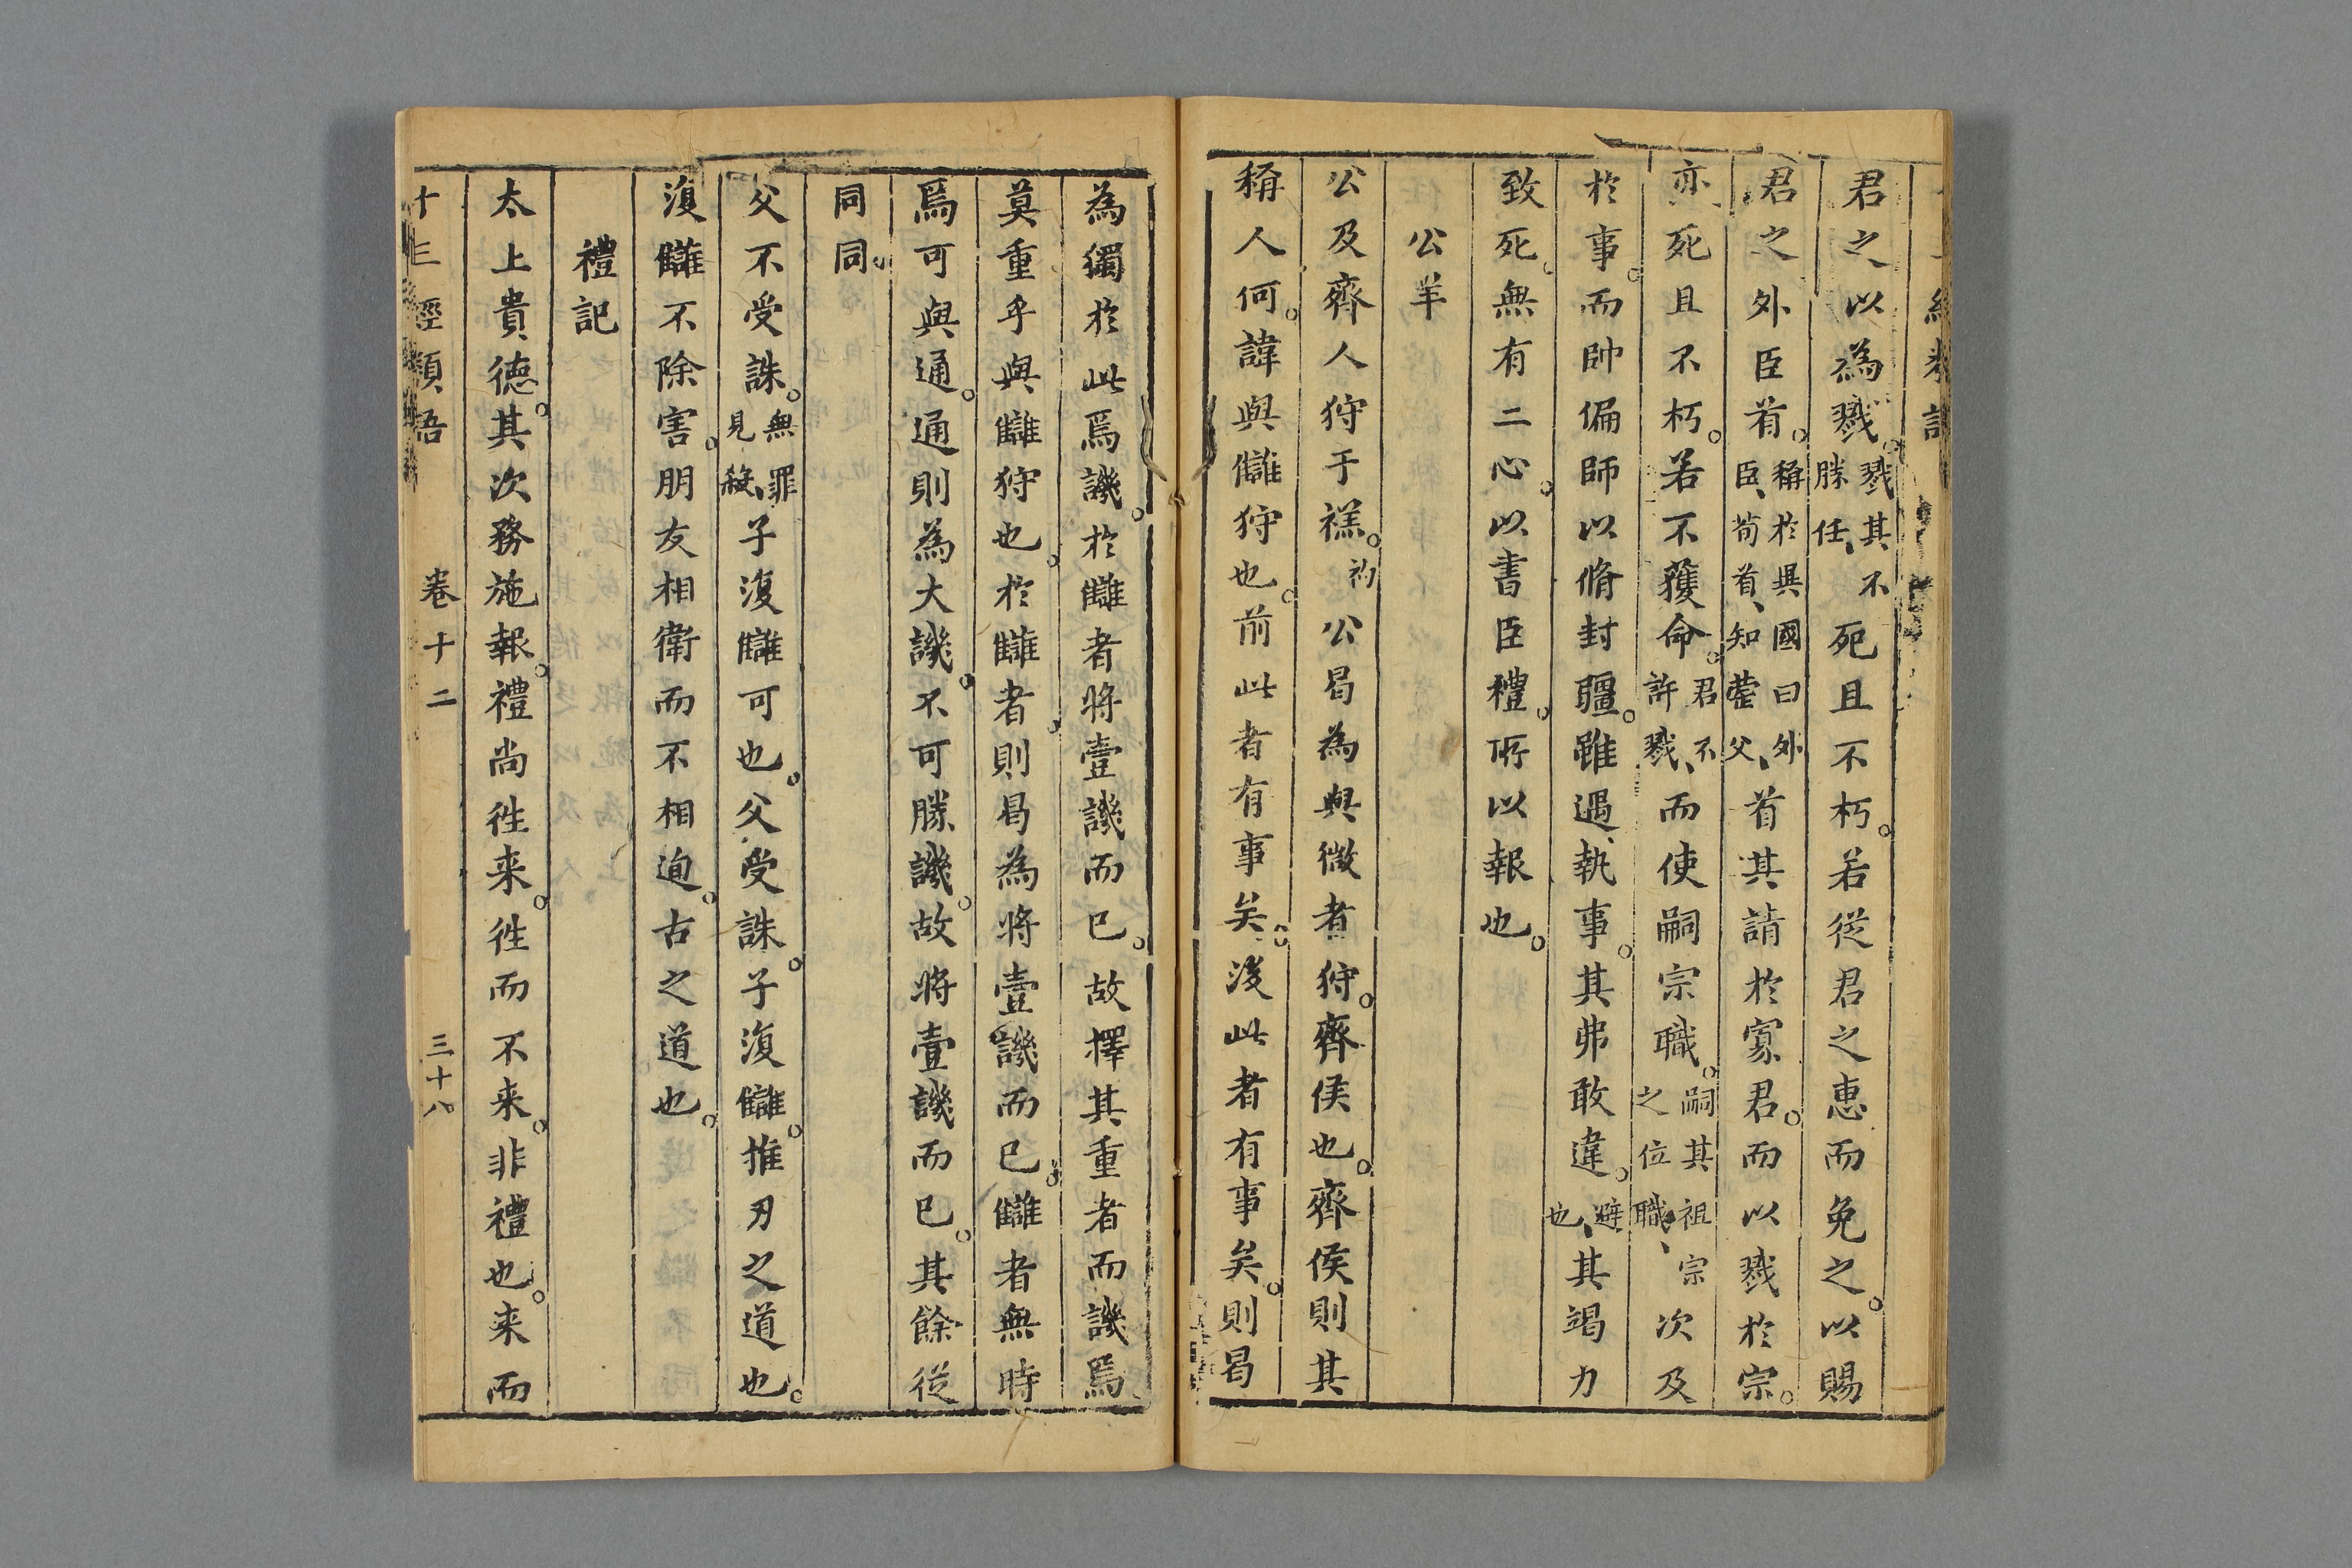 君之以為戮戮其不勝任死且不朽若從君之惠而免之以賜
君之外臣首稱於異國曰外臣荀首知罃父首其請於寡君而以戮於宗
亦死且不朽若不獲命君不許戮而使嗣宗職嗣其祖宗之位職次及
於事而帥偏師以脩封疆雖遇執事其弗敢違避也其竭力
致死無有二心以書臣禮所以報也
公羊
公及齊人狩于禚礿公曷為與微者狩齊侯也齊侯則其
稱人何諱與讎狩也前此者有事矣後此者有事矣則曷
為獨於此焉譏於讎者將壹譏而已故擇其重者而譏焉
莫重乎與讎狩也於讎者則曷為將壹譏而已讎者無時
焉可與通通則為大譏不可勝譏故將壹譏而已其餘從
同同
父不受誅無罪見殺子復讎可也父受誅子復讎推刃之道也
復讎不除害朋友相衛而不相迿古之道也
禮記
太上貴德其次務施報禮尚徃来徃而不来非禮也来而
十三經類語 卷十二 三十八